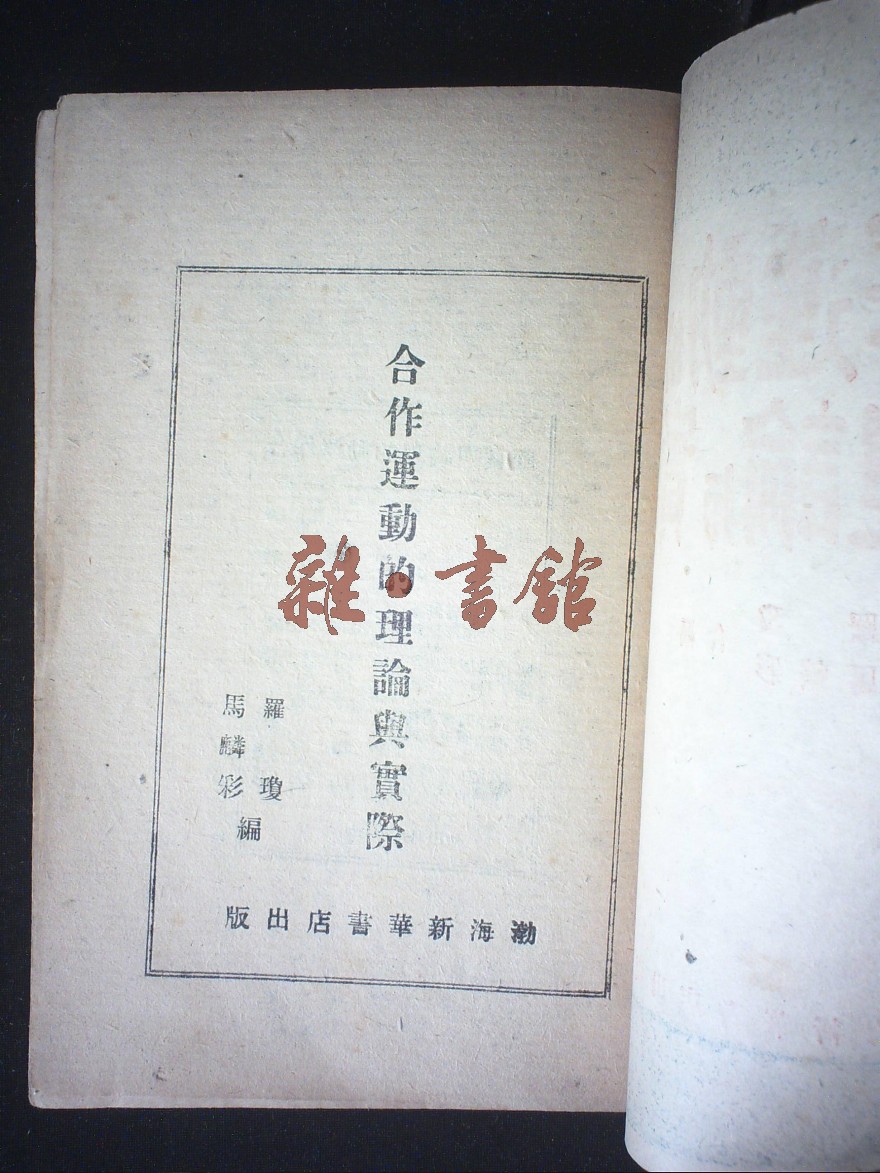 合作運動的理論與實際
羅瓊
馬麟彩
編
渤海新華書店出版
雜·書館